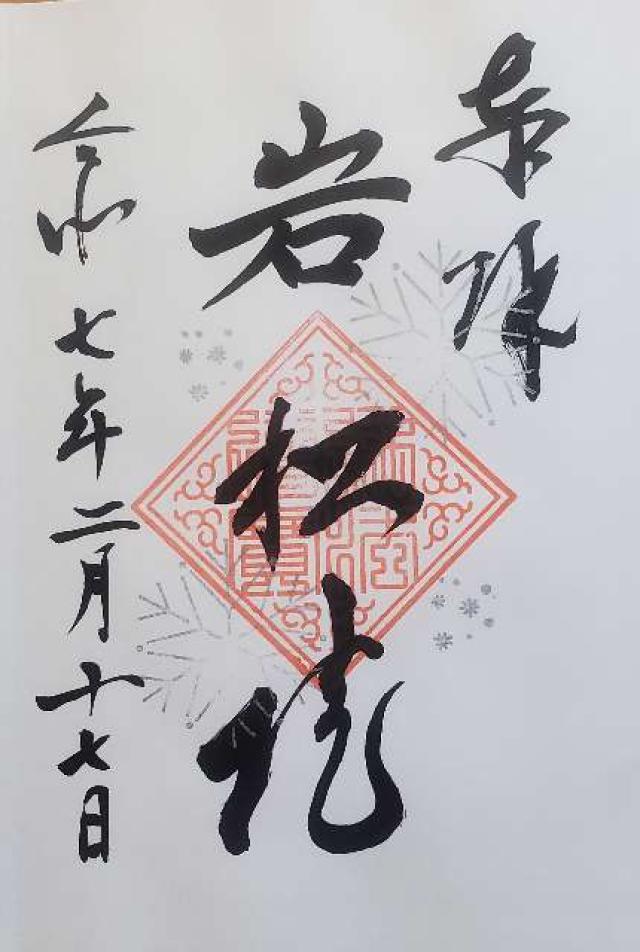 奉拝
岩松院
令和七年二月十七日